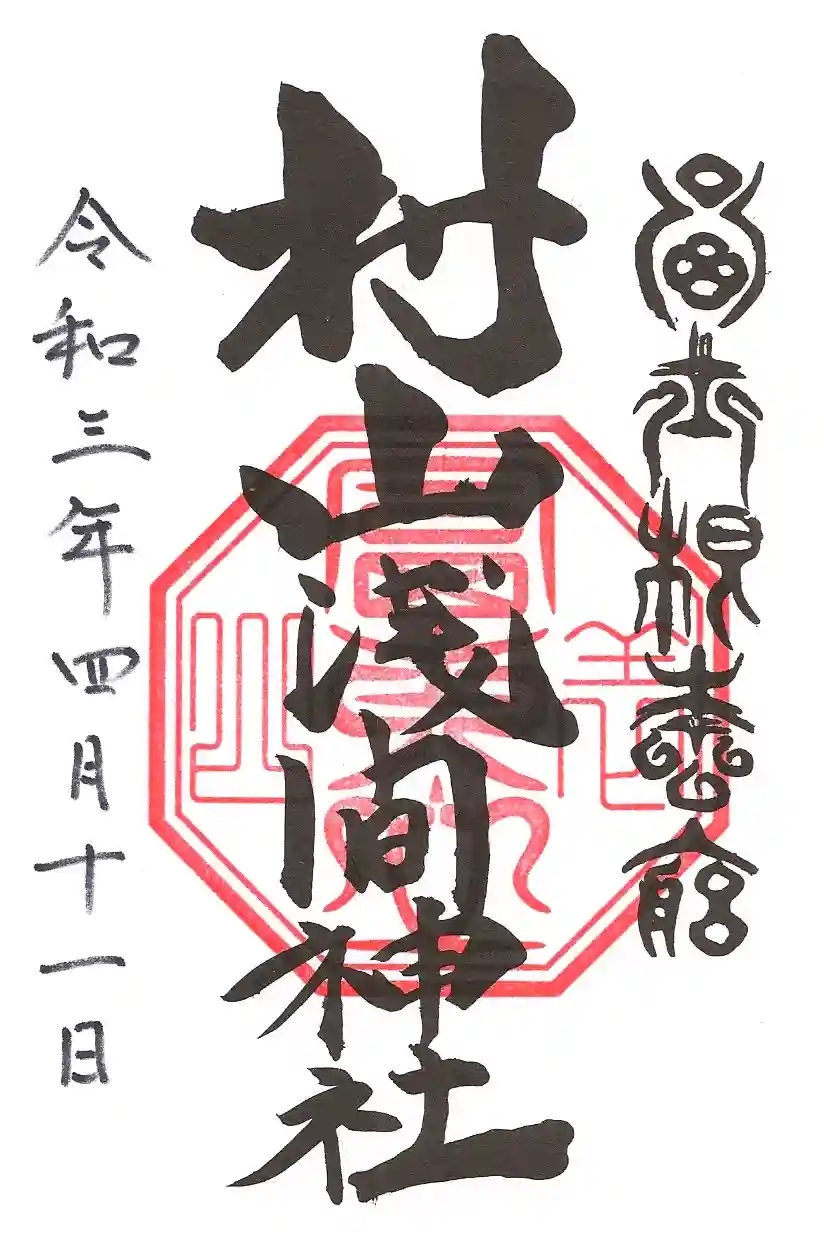 富士根本宮
村山浅間神社
令和三年四月十一日